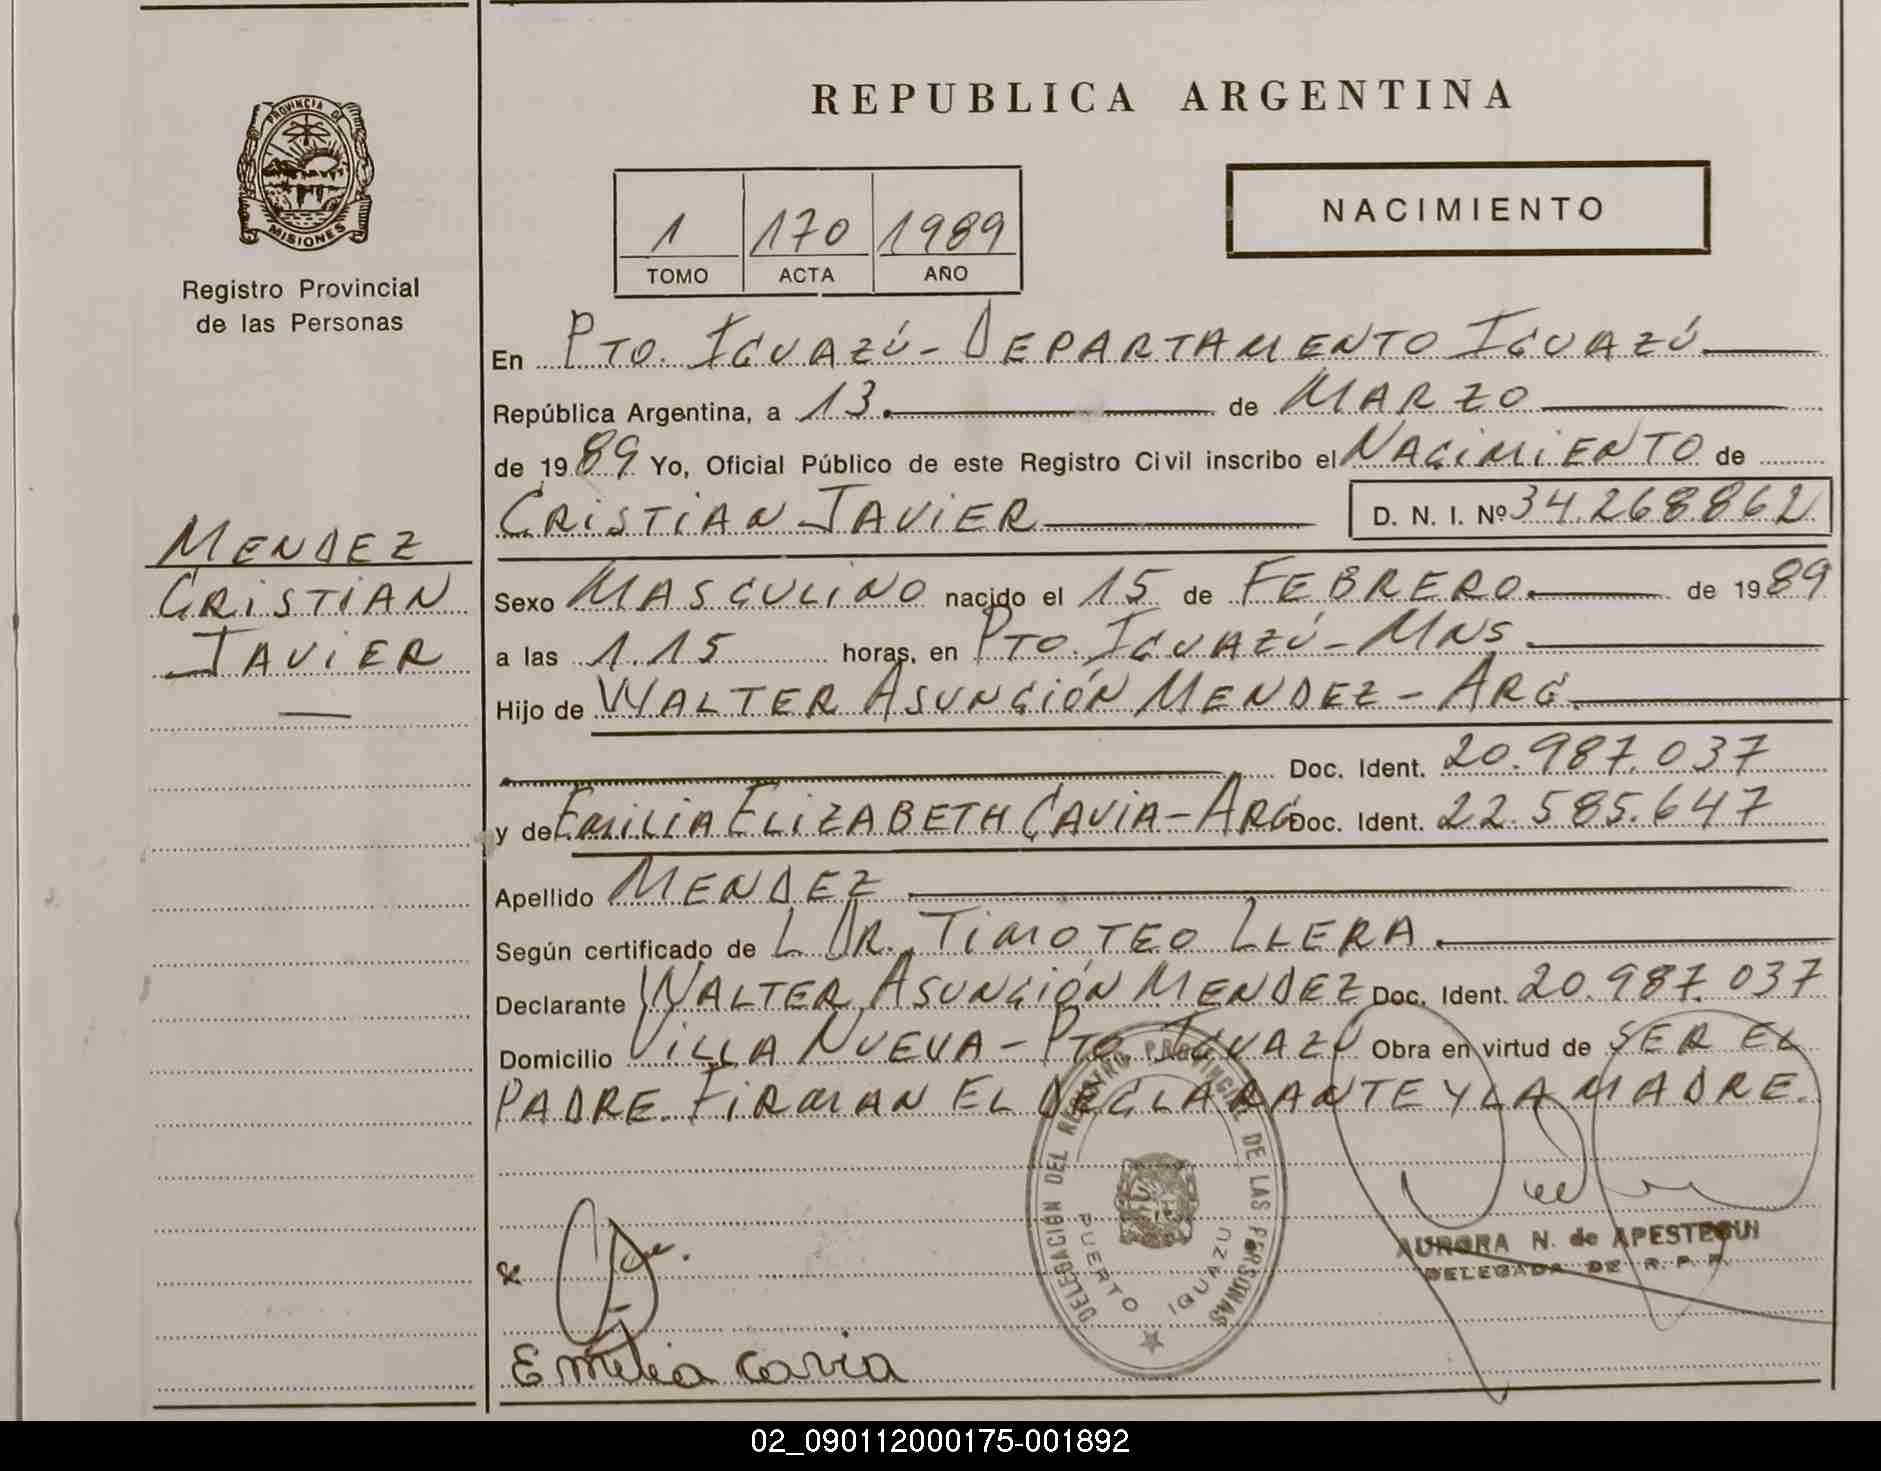 PROVINCIA DE
MISIONES
Registro Provincial
de las Personas
MENDEZ
CRISTIAN
JAVIER
REPUBLICA ARGENTINA
1 170 1989
TOMO ACTA AÑO
NACIMIENTO
En PTO. IGUAZÚ - DEPARTAMENTO IGUAZÚ
República Argentina, a 13 de MARZO
de 1989 Yo, Oficial Público de este Registro Civil inscribo el NACIMIENTO de
CRISTIAN JAVIER D. N. I. Nº 34.268.862
Sexo MASCULINO nacido el 15 de FEBRERO de 1989
a las 1.15 horas, en PTO. IGUAZÚ - MNS
Hijo de WALTER ASUNCIÓN MENDEZ - ARG.
Doc. Ident. 20.987.037
y de EMILIA ELIZABETH CAVIA - ARG Doc. Ident. 22.585.647
Apellido MENDEZ
Según certificado de L DR. TIMOTEO LLERA
Declarante WALTER ASUNCIÓN MENDEZ Doc. Ident. 20.987.037
Domicilio VILLA NUEVA - PTO IGUAZÚ Obra en virtud de SER EL
PADRE. FIRMAN EL DECLARANTE Y LA MADRE.
DELEGACIÓN DEL REGISTRO PROVINCIAL DE LAS PERSONAS
PUERTO IGUAZU
AURORA N. de APESTEGUI
DELEGADA DE R. P. P.
Emilia Cavia
02_090112000175-001892